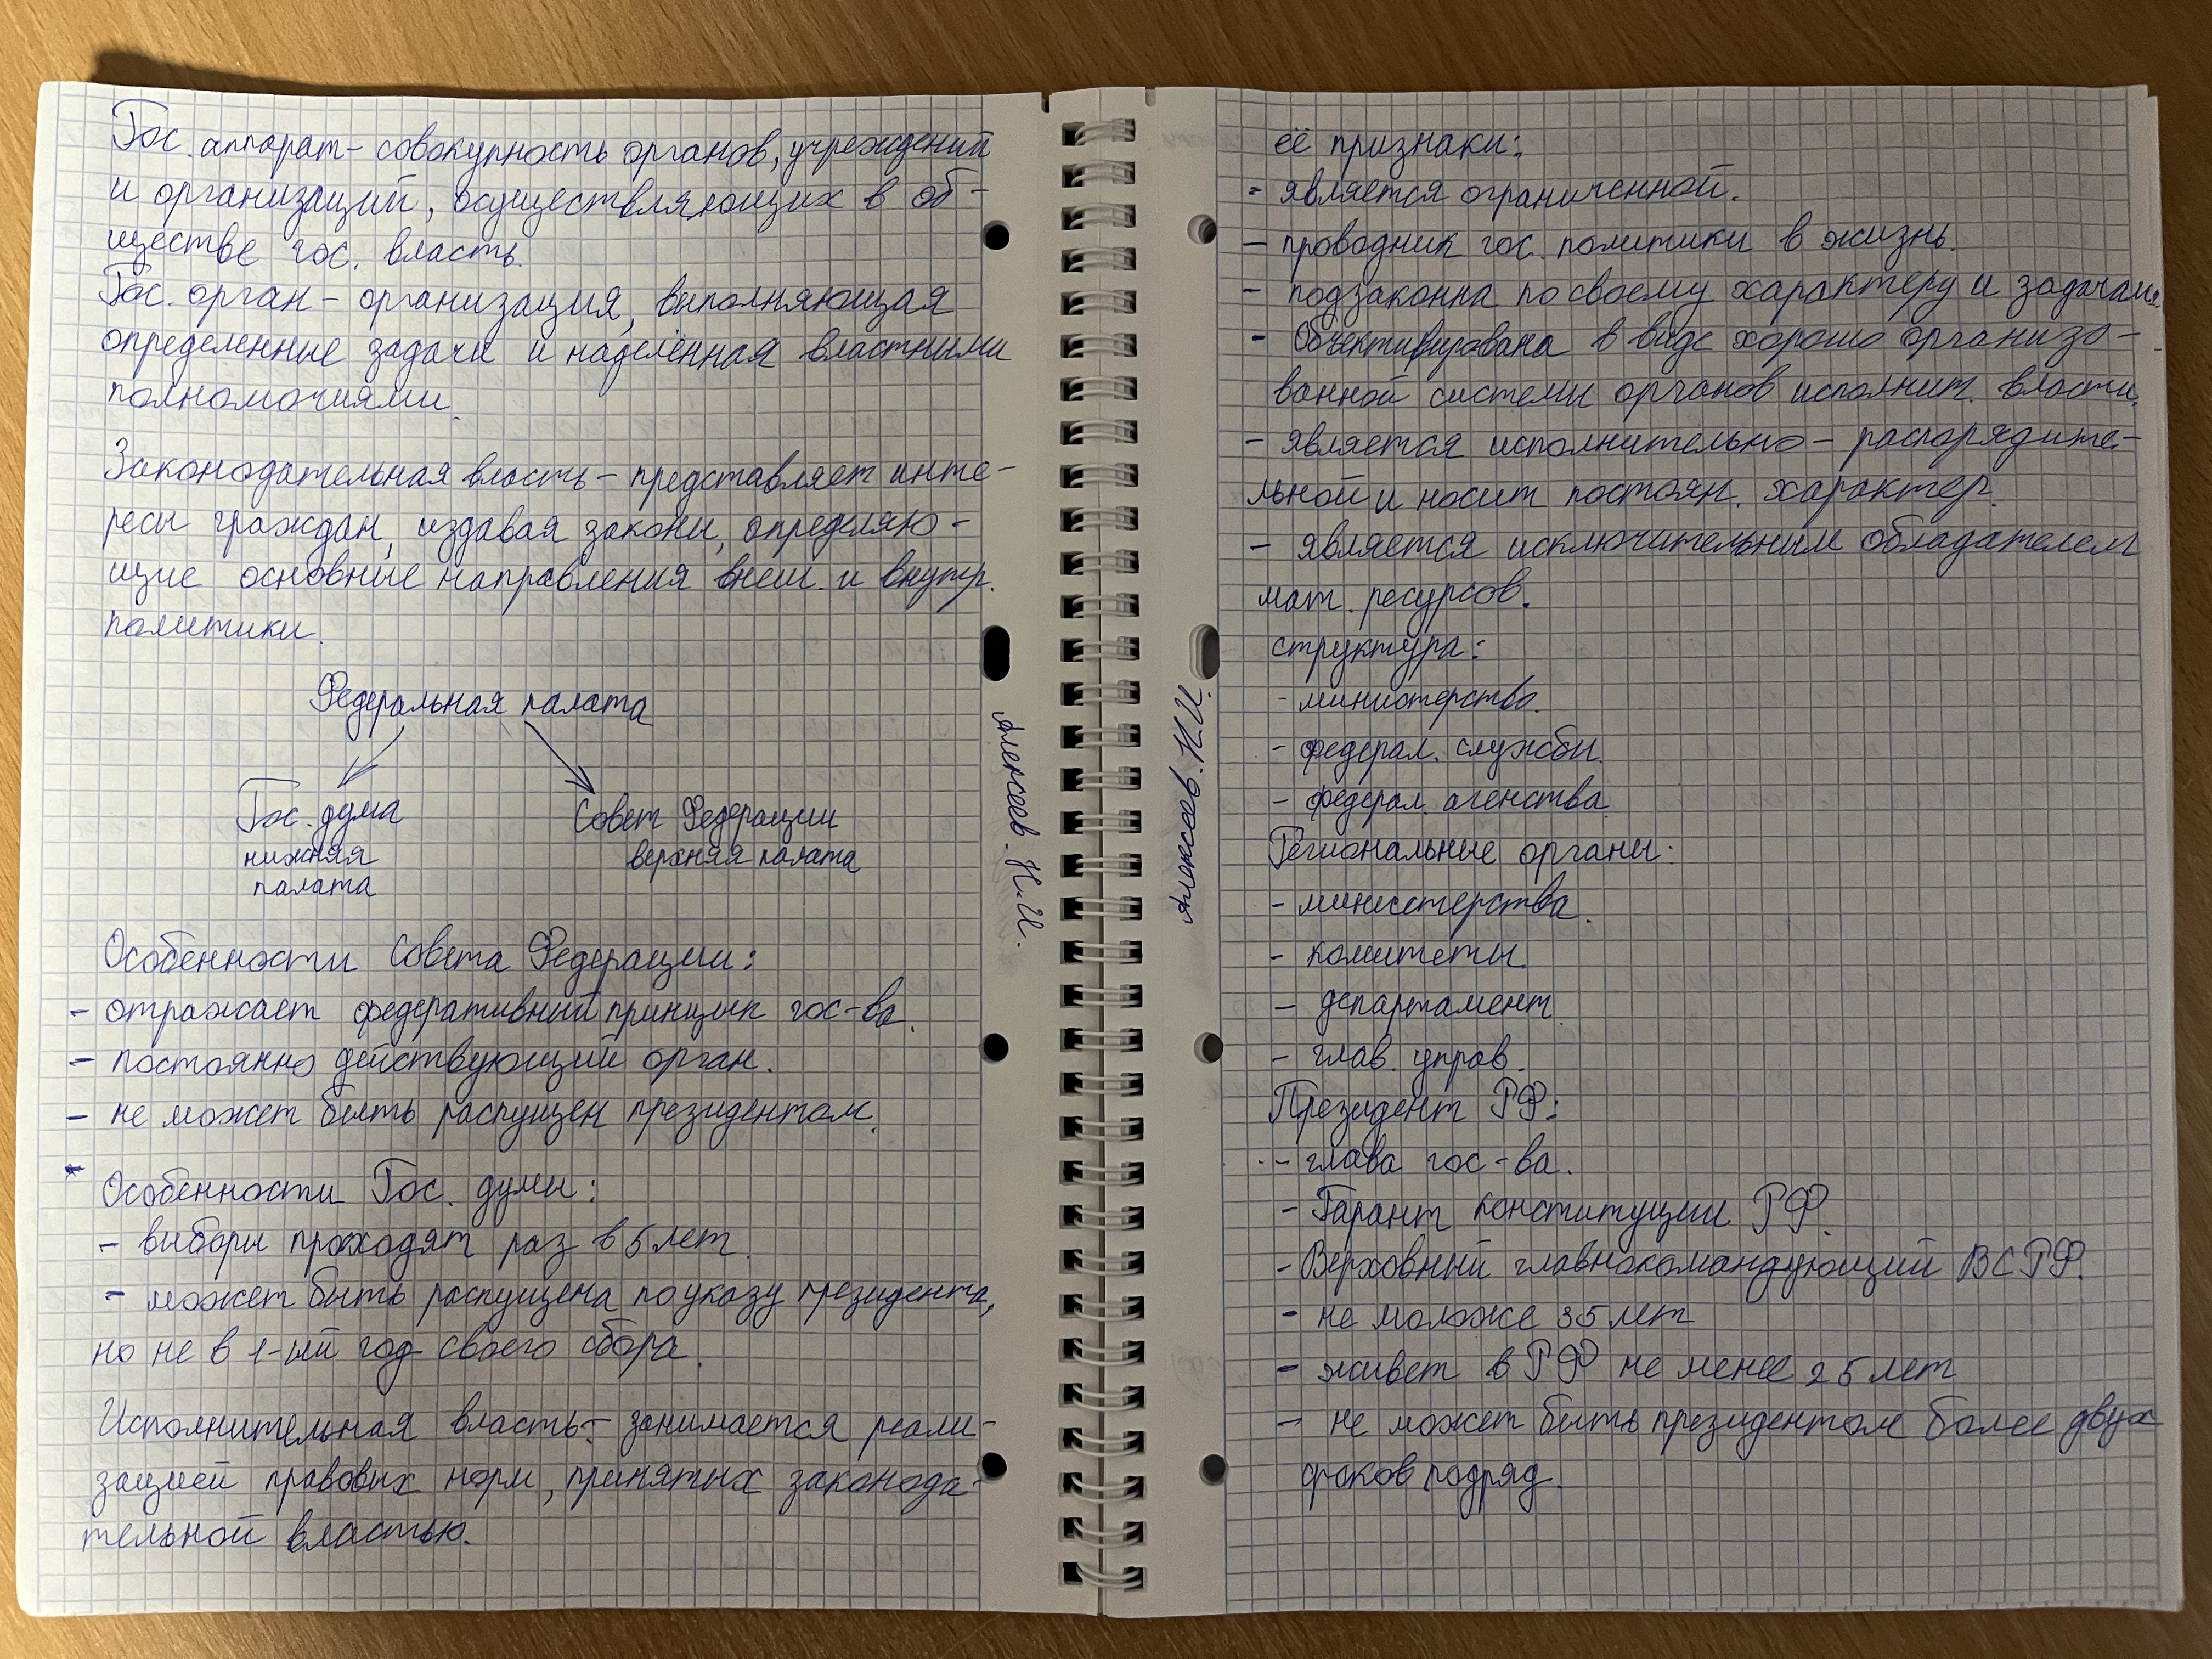 Гос. аппарат - совокупность органов, учреждений
и организаций, осуществляющих в об-
ществе гос. власть.
Гос. орган - организация, выполняющая
определённые задачи и наделённая властными
полномочиями.
Законодательная власть - представляет инте-
ресы граждан, издавая законы, определяю-
щие основные направления внеш. и внутр.
политики.
Федеральная палата
Гос. дума
нижняя
палата
Совет Федерации
верхняя палата
Особенности Совета Федерации:
- отражает федеративный принцип гос-ва.
- постоянно действующий орган.
- не может быть распущен президентом.
* Особенности Гос. думы:
- выборы проходят раз в 5 лет.
- может быть распущена по указу президента,
но не в 1-ый год своего сбора.
Исполнительная власть - занимается реали-
зацией правовых норм, принятых законода-
тельной властью.
Алексеев. Н.И.
Алексеев. Н.И.
её признаки:
- является ограниченной.
- проводник гос. политики в жизнь.
- подзаконна по своему характеру и задачам.
- Объективирована в виде хорошо организо-
ванной системы органов исполнит. власти.
- является исполнительно - распорядите-
льной и носит постоян. характер.
- является исключительным обладателем
мат. ресурсов.
структура:
- министерство.
- федерал. службы.
- федерал. агенства.
Региональные органы:
- министерства.
- комитеты
- департамент
- глав. управ.
Президент РФ:
- глава гос-ва.
- Гарант конституции РФ.
- Верховный главнокомандующий ВС РФ.
- не моложе 35 лет
- живет в РФ не менее 25 лет
- не может быть президентом более двух
сроков подряд.